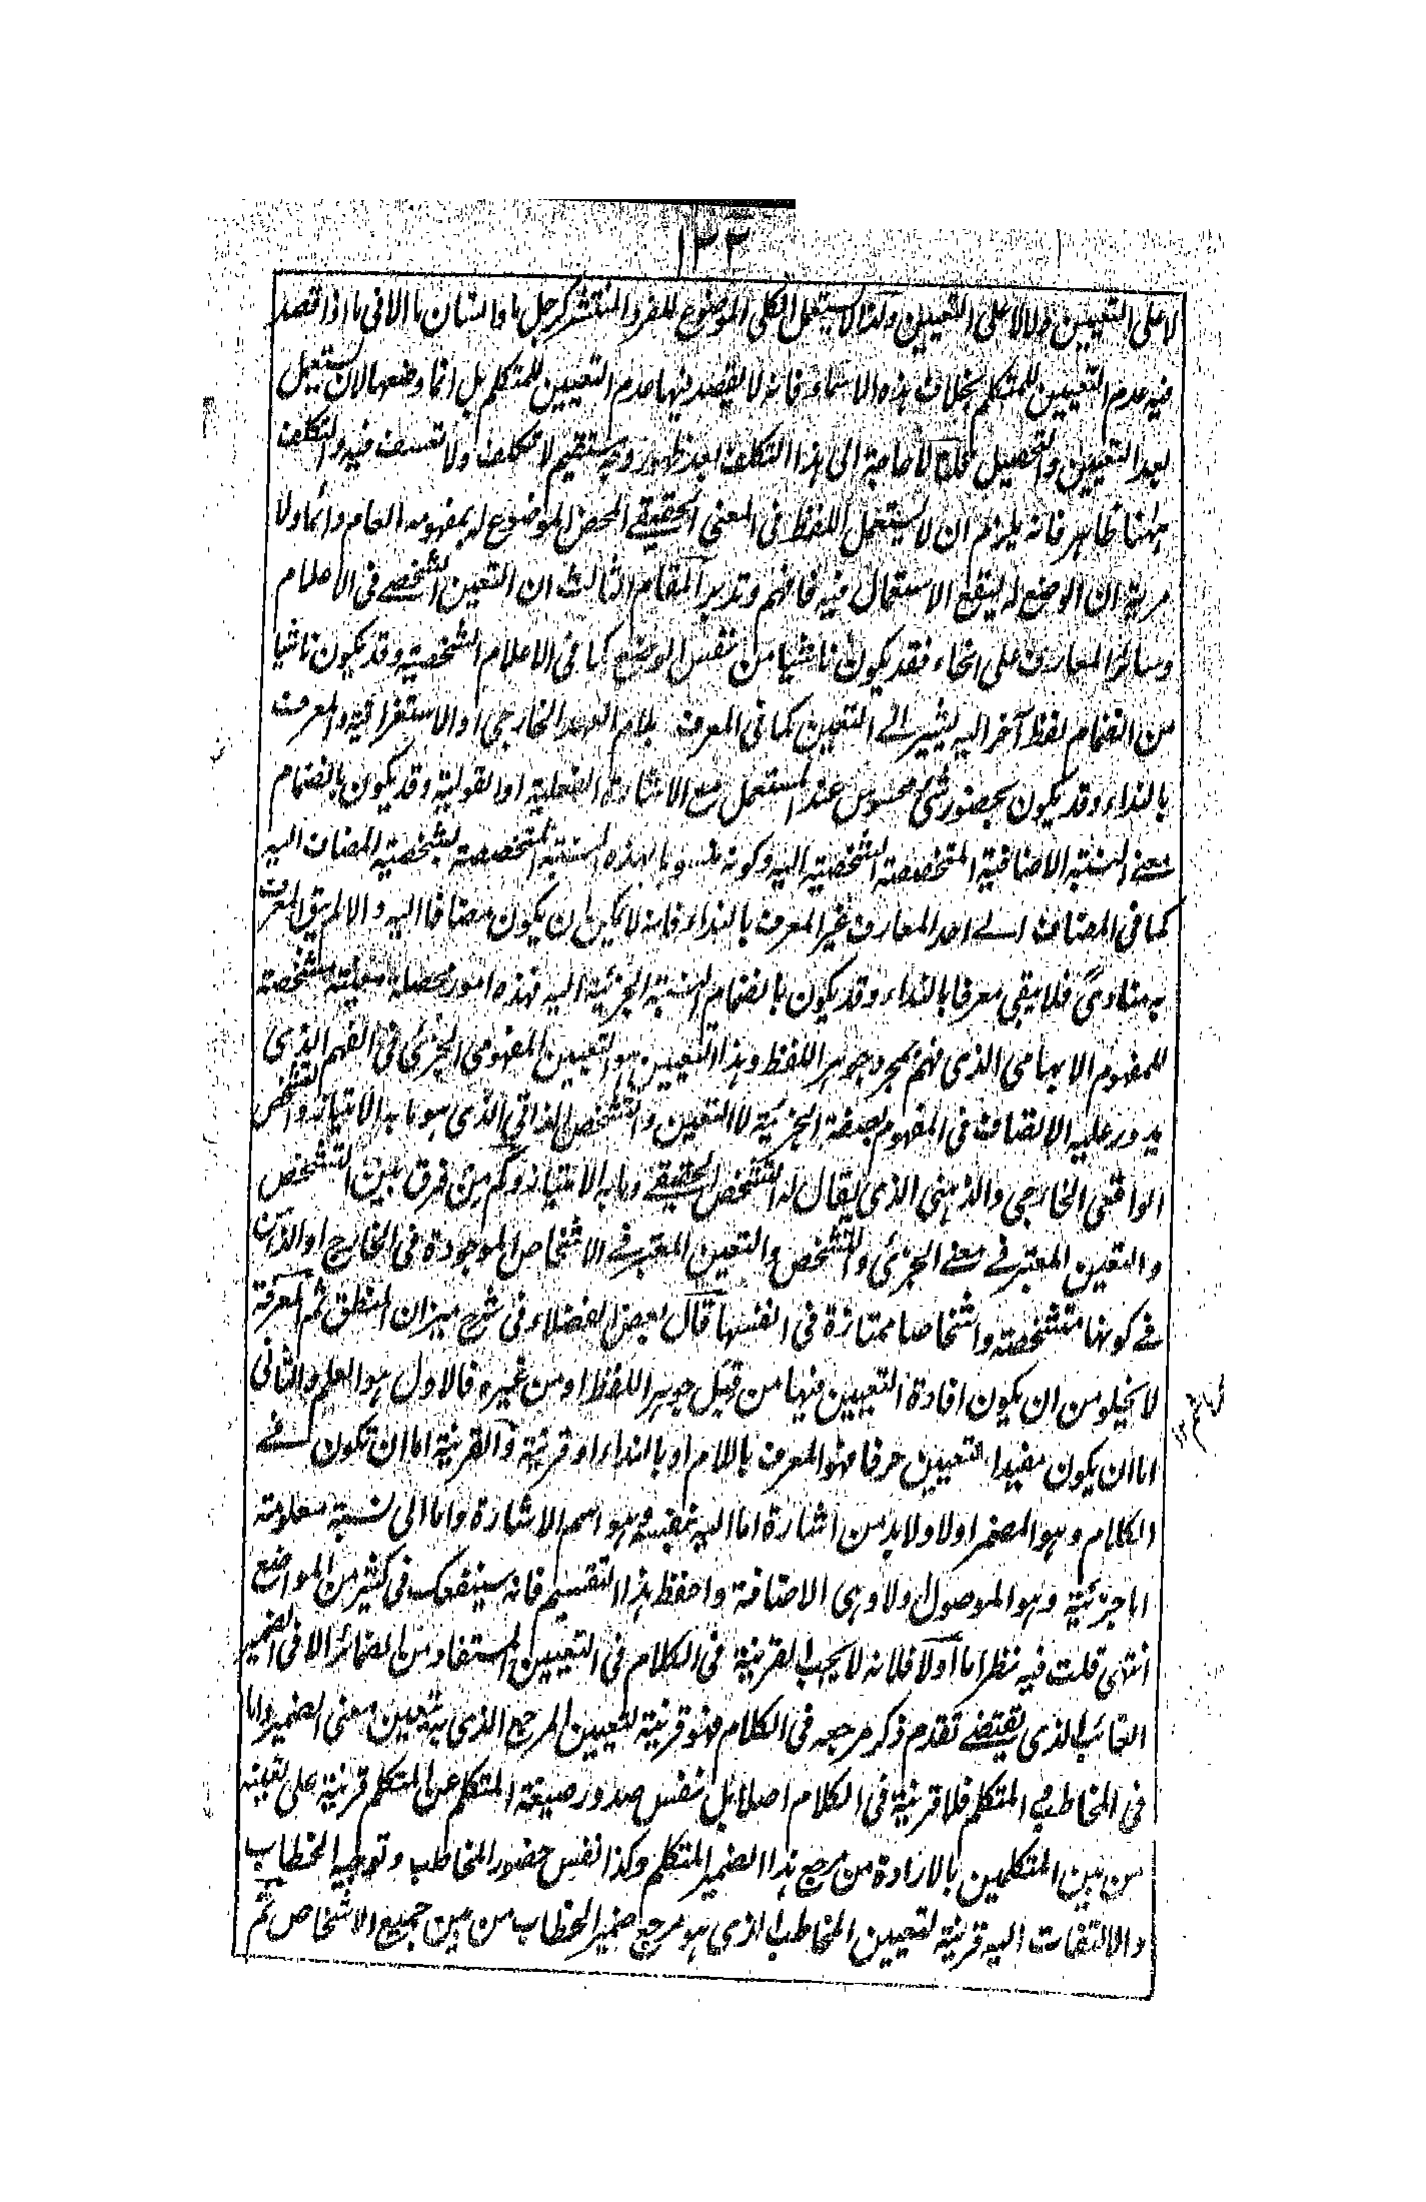 ١٣٣
لا على التعيين ولا لا على التعيين ولذا لا يستعمل الكلى الموضوع للفرد المنتشر كرجل ما وانسان ما الا فى ما اذا قصد
فيه عدم التعيين للمتكلم بخلاف هذه الاسماء فانه لا يقصد فيها عدم التعيين للمتكلم بل انما وضعها لان يستعمل
بعد التعيين والتحصيل لا حاجة الى هذا التكلف بعد ظهور وجه مستقيم لا تكلف ولا تعسف فيه والتكلف
ههنا ظاهر فانه يلزم ان لا يستعمل اللفظ فى المعنى الحقيقے المحض الموضوع له بمفهومه العام دائما ولا
مرية ان الوضع له ليقع الاستعمال فيه فافهم وتدبر المقام الثالث ان التعين الشخصے فى الاعلام
وسائر المعارف على انحاء فقد يكون ناشيا من نفس الوضع كما فى الاعلام الشخصية وقد يكون ناشيا
من انضمام لفظ آخر اليه يشير الے التعين كما فى المعرف بلام العهد الخارجى او الاستغراقية والمعرف
بالنداء وقد يكون بحضور شئ محسوس عند المستعمل مع الاشارة الفعلية او القولية وقد يكون بانضمام
معنے النسبة الاضافية المتخصصة الشخصية اليه وكونه منسوبا لهذه النسبة المتخصصة الشخصية المضاف اليه
كما فى المضاف الے احد المعارف غير المعرف بالنداء فانه لا يمكن ان يكون مضافا اليه والا لم يبق المعرف
به منادىً فلا يبقى معرفا بالنداء وقد يكون بانضمام النسبة الجزئية اليه فهذه امور محصلة معينة مشخصة
للمفهوم الابهامى الذى فهم بمجرد جوهر اللفظ وهذا التعيين هو التعيين المفهومى الجزئى فى الفهم الذى
يدور عليه الاتصاف فى المفهوم بصفة الجزئية لا التعين والتشخص الذاتى الذى هو ما به الامتياز والتشخص
الواقعى الخارجى والذهنى الذى يقال له التشخص الحقيقے وما به الامتياز وكم من فرق بين التشخص
والتعين المعتبر فے معنے الجزئى والتشخص والتعين المعتبر فے الاشخاص الموجودة فى الخارج او الذهن
فے كونها متشخصة واشخاصا ممتازة فى انفسها قال بعض الفضلاء فى شرح ميزان المنطق ثم المعرفة
لا يخلو من ان يكون افادة التعيين فيها من قبل جوهر اللفظ او من غيره فالاول هو العلم والثانى
اما ان يكون مفيدا لتعيين حرفا فهو المعرف باللام او بالنداء او قرينة والقرينة اما ان تكون فے
الكلام وهو المضمر او لا ولا بد من اشارة اما اليه نفسه وهو اسم الاشارة واما الى نسبة معلومة
اما جزئية وهو الموصول او لا وهى الاضافة واحفظ هذا التقسيم فانه سينفعك فى كثير من المواضع
انتهى قلت فيه نظر اما اولا فلانه لا يجب القرينة فى الكلام فى التعيين المستفاد من الضمائر الا فى الضمير
الغائب الذى يقتضے تقدم ذكر مرجعه فى الكلام فهو قرينة لتعيين المرجع الذى به يتعين معنى الضمير واما
فى المخاطب والمتكلم فلا قرينة فى الكلام اصلا بل نفس صدور صيغة المتكلم عن المتكلم قرينة على تعينه
من بين المتكلمين بالارادة من مرجع هذا الضمير المتكلم وكذا نفس حضور المخاطب وتوجيه الخطاب
والالتفات اليه قرينة لتعيين المخاطب الذى هو مرجع ضمير الخطاب من بين جميع الاشخاص ثم